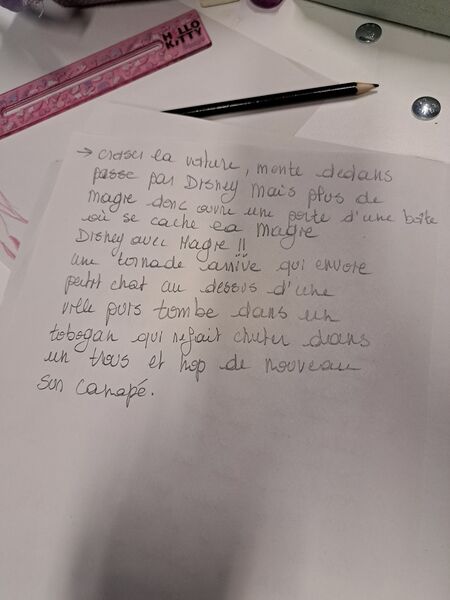 HELLO
KITTY
→ croiser la voiture, monte dedans
passe par Disney Mais plus de
Magie donc ouvre une porte d'une boîte
où se cache la Magie
Disney avec Magie !!
une tornade arrive qui envoie
petit chat au dessus d'une
ville puis tombe dans un
tobogan qui refait chuter dans
un trous et hop de nouveau
son canapé.